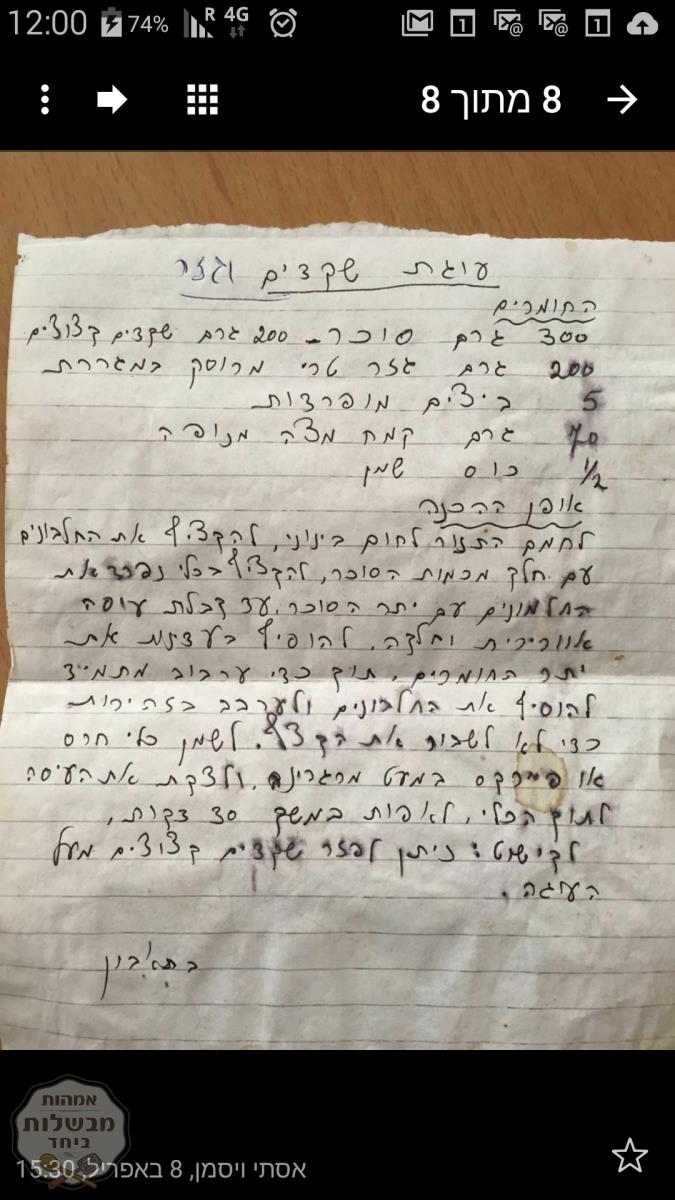 12:00 74% R 4G 1 1
8 מתוך 8
עוגת שקדים וגזר
החומרים
300 גרם סוכר - 200 גרם שקדים קצוצים
200 גרם גזר טרי מרוסק במגררת
5 ביצים מופרדות
70 גרם קמח מצה מנופה
1/2 כוס שמן
אופן ההכנה
לחמם התנור לחום בינוני, להקציף את החלבונים
עם חלק מכמות הסוכר, להקציף בכלי נפרד את
החלמונים עם יתר הסוכר, עד קבלת עופה
אוורירית וחלקה. להוסיף בעדינות את
יתר החומרים, תוך כדי ערבוב מתמיד
להוסיף את החלבונים ולערבב בזהירות
כדי לא לשבור את הקצף. לשמן כלי חרס
או פיירקס במעט מרגרינה, ולצקת את העיסה
לתוך הכלי, לאפות במשך 30 דקות,
לקישוט: ניתן לפזר שקדים קצוצים מעל
העוגה.
בתאבון
אמהות
מבשלות
ביחד
אסתי ויסמן, 8 באפריל, 15:30